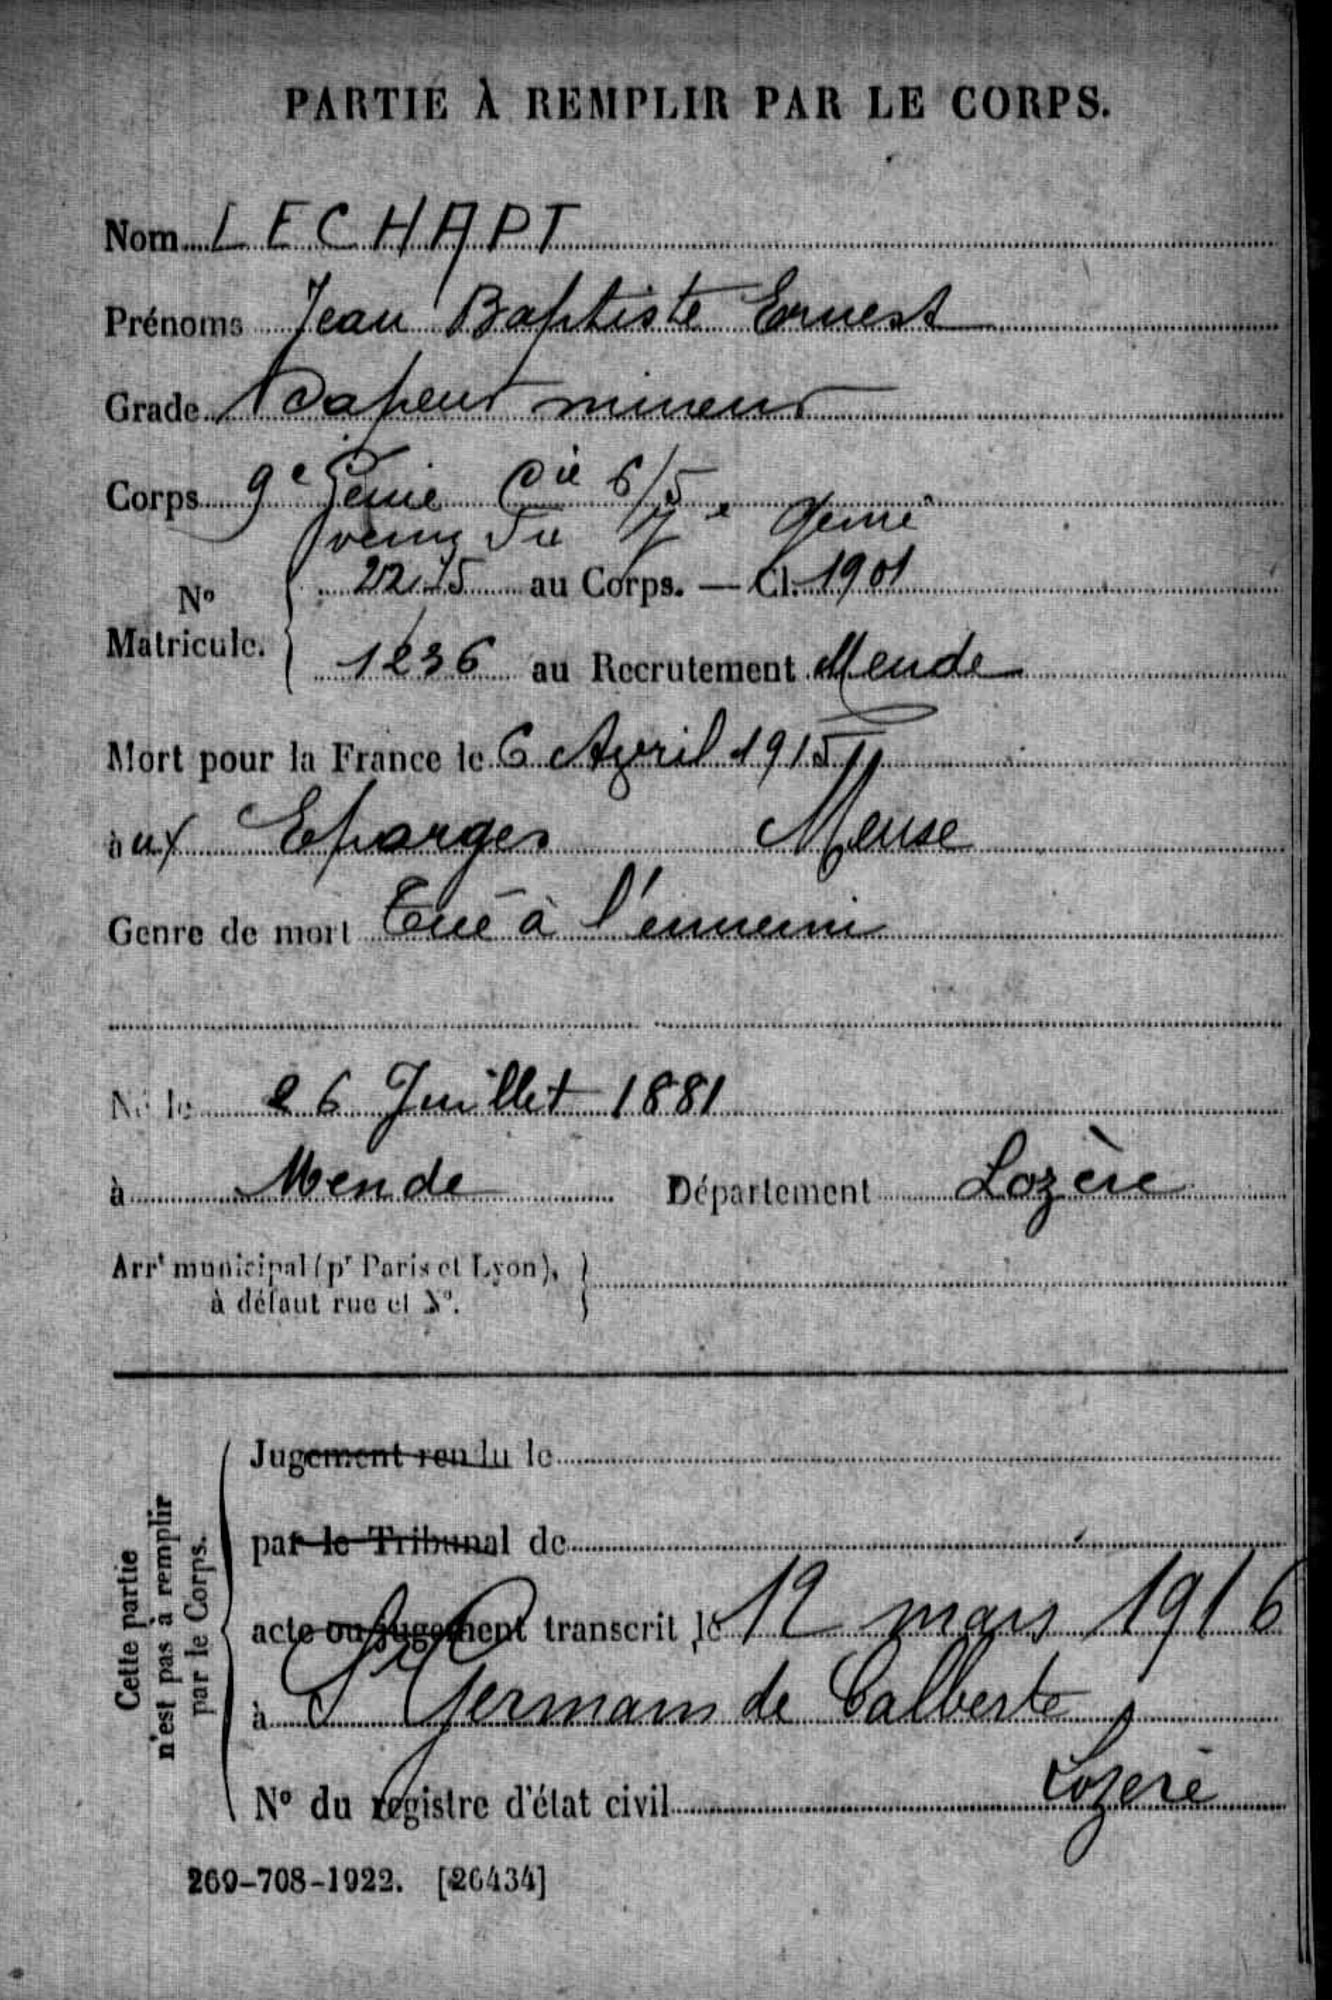 PARTIE À REMPLIR PAR LE CORPS.
Nom LECHAPT
Prénoms Jean Baptiste Ernest
Grade Sapeur mineur
Corps 9e Génie Cie 6/5
venu du 7e Génie
No Matricule. 2215 au Corps. — Cl. 1901
1236 au Recrutement Mende
Mort pour la France le 6 Avril 1915
aux Eparges Meuse
Genre de mort Tué à l'ennemi
Né le 26 Juillet 1881
à Mende Département Lozère
Arrt municipal (pr Paris et Lyon),
à défaut rue et No.
Cette partie
n'est pas à remplir
par le Corps.
Jugement rendu le
par le Tribunal de
acte ou jugement transcrit le 12 mars 1916
à St Germain de Calberte
Lozère
No du registre d'état civil
269-708-1922. [26434]